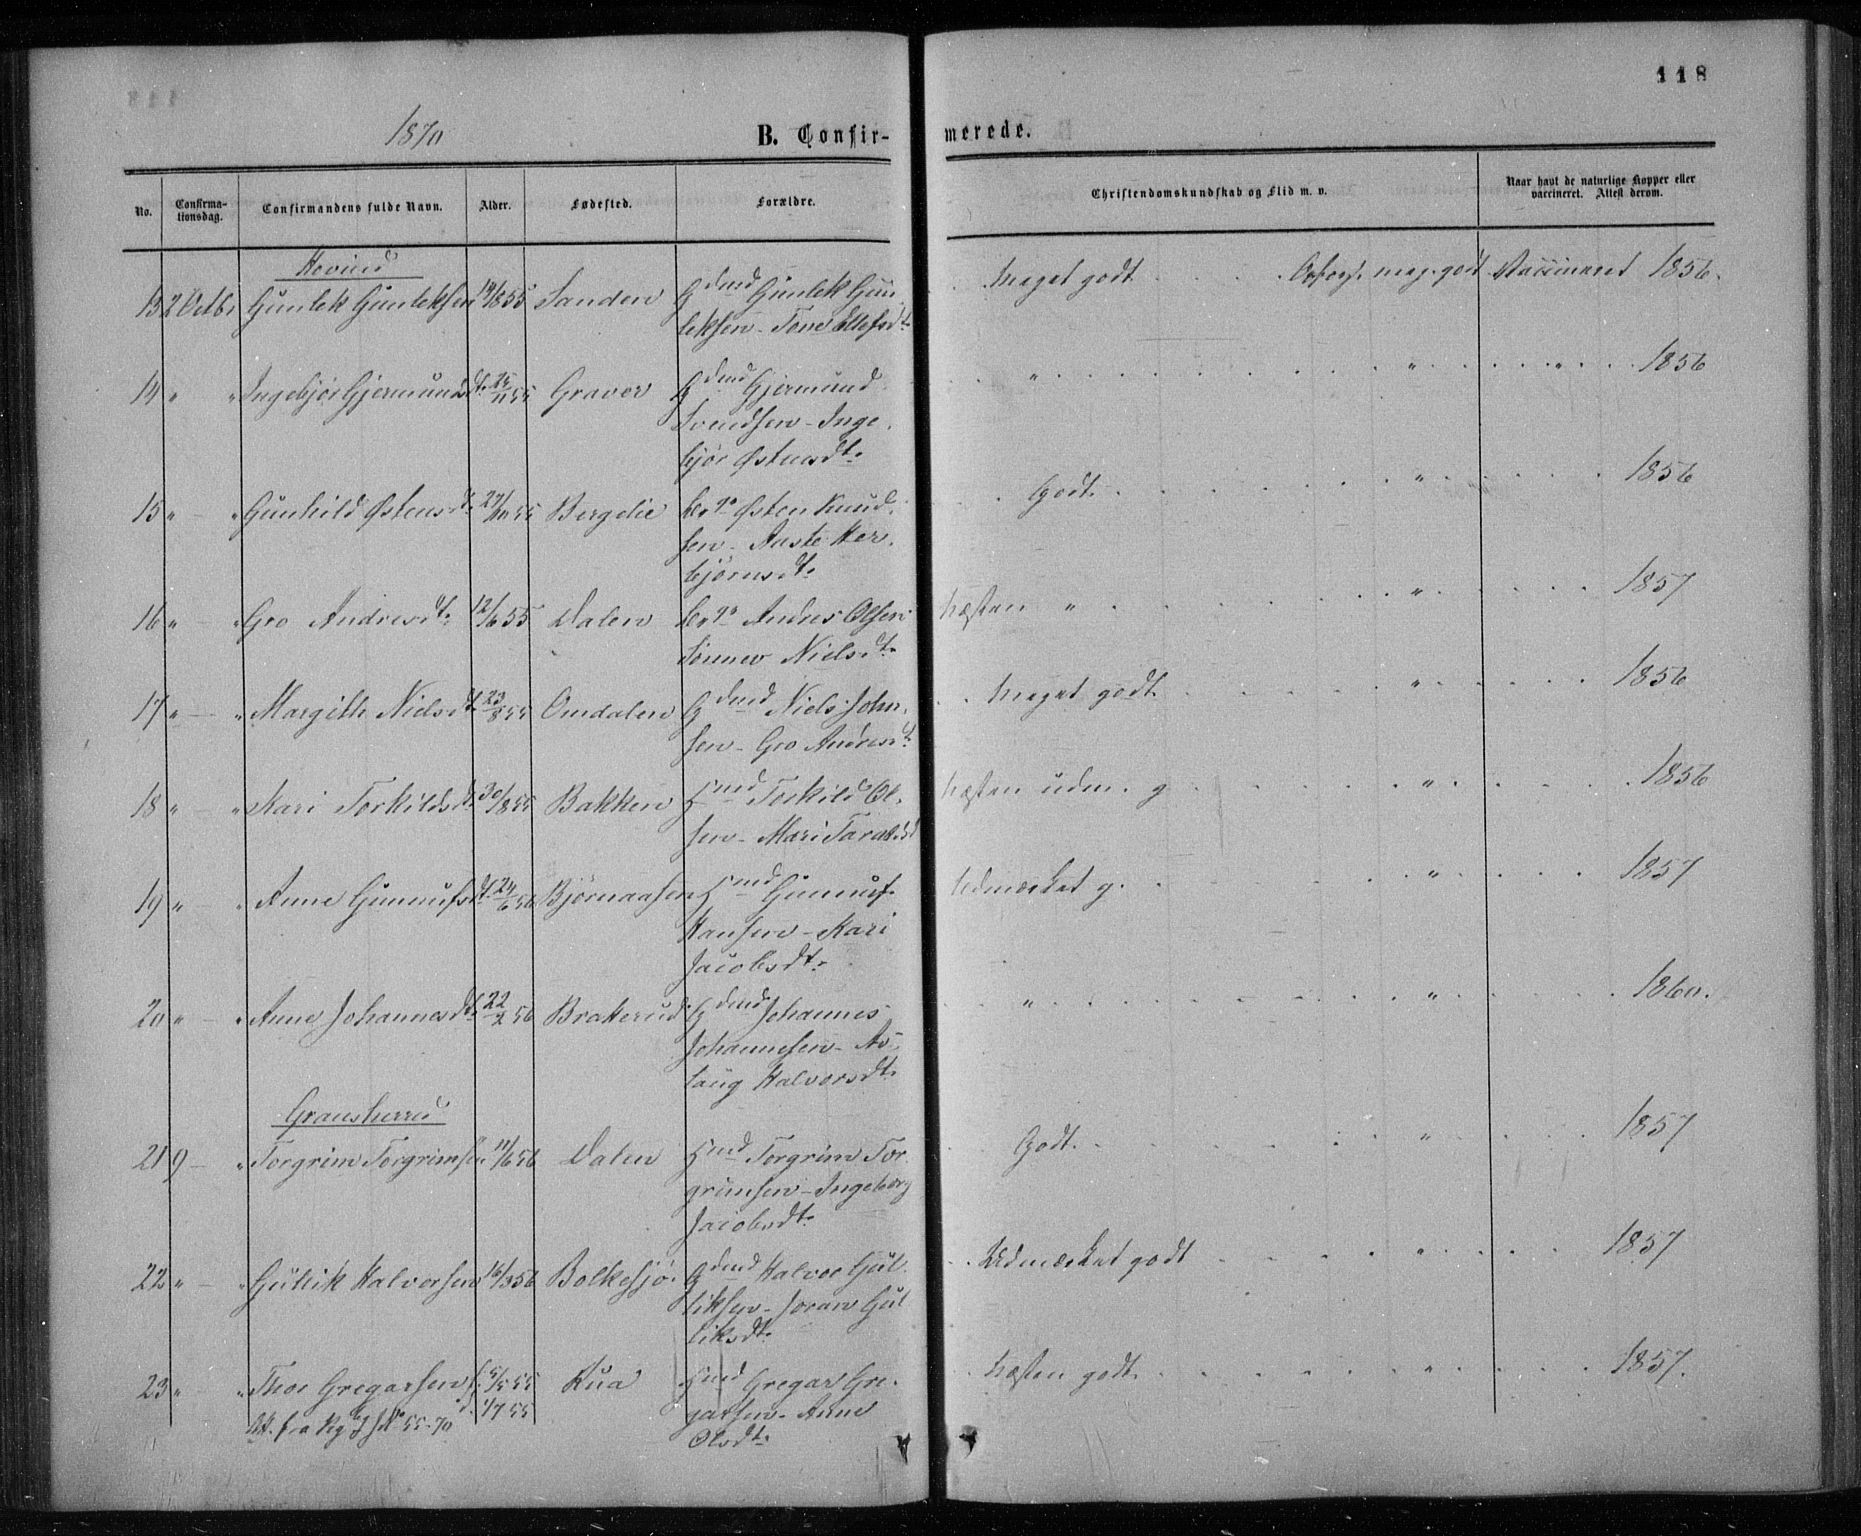 118
1870
B. Confir-
merede.
No.
Confirma-
tionsdag.
Confirmandens fulde Navn.
Alder.
Fødested.
Forældre.
Christendomskundskab og Flid m. v.
Naar havt de naturlige Kopper eller
vaccineret. Attest derom.
Hovind
13 2 Octbr Gunlek Gunleksen 19/855 Sanden Gdmd Gunlek Gun
leksen - Tone Ellefsdt.
Meget godt . . . . meg. godt Vaccineret 1856.
14 " " Ingebjør Gjermundsdt. 25/11 55 Graver Gdmd Gjermund
Svendsen - Inge
bjør Østensdt.
" " " 1856
15 " - " Gunhild Østensdt. 27/10 55 Bergelie Østen Knud
sen - Aaste Her
bjørnsdt.
Godt. " 1856
16 " - " Gro Andresdt. 12/6 55 Dalen Andres Olsen
Sønnev Nielsdt.
Næsten " " 1857
17 " - " Margith Nielsdt. 23/8 55 Omdalen Gdmd Niels John
sen - Gro Andresdt.
Meget godt " 1856
18 " - " Kari Torkildsdt. 30/8 55 Bakken Hmd Torkild Ol
sen - Mari Taraldsd
Næsten udm. g " 1856
19 " - " Anne Gunnufsdt. 24/6 56 Bjørnaasen Hmd Gunnuf
Hansen - Kari
Jacobsdt.
Udmærket g. " 1857
20 " - " Anne Johannesdt. 22/2 56 Brakerud Gdmd Johannes
Johannesen - As
laug Halvorsdt.
" " 1860.
Gransherred
21 9 - " Torgrim Torgrimsen 11/6 56 Dalen Hmd Torgrim Tor
grimsen - Ingeborg
Jacobsdt.
Godt. " 1857
22 " - " Gullik Halvorsen 16/3 56 Bolkesjø. Gdmd Halvor Gul
liksen - Joran Gul
liksdt.
Udmærket godt " 1857
23 " " Thor Gregarsen f. 5/5 55 Rua Hmd Gregar Gre
garsen - Anne
Olsdt.
Næsten godt. " 1857.
Att. fra 55-70 d. 1/7 55